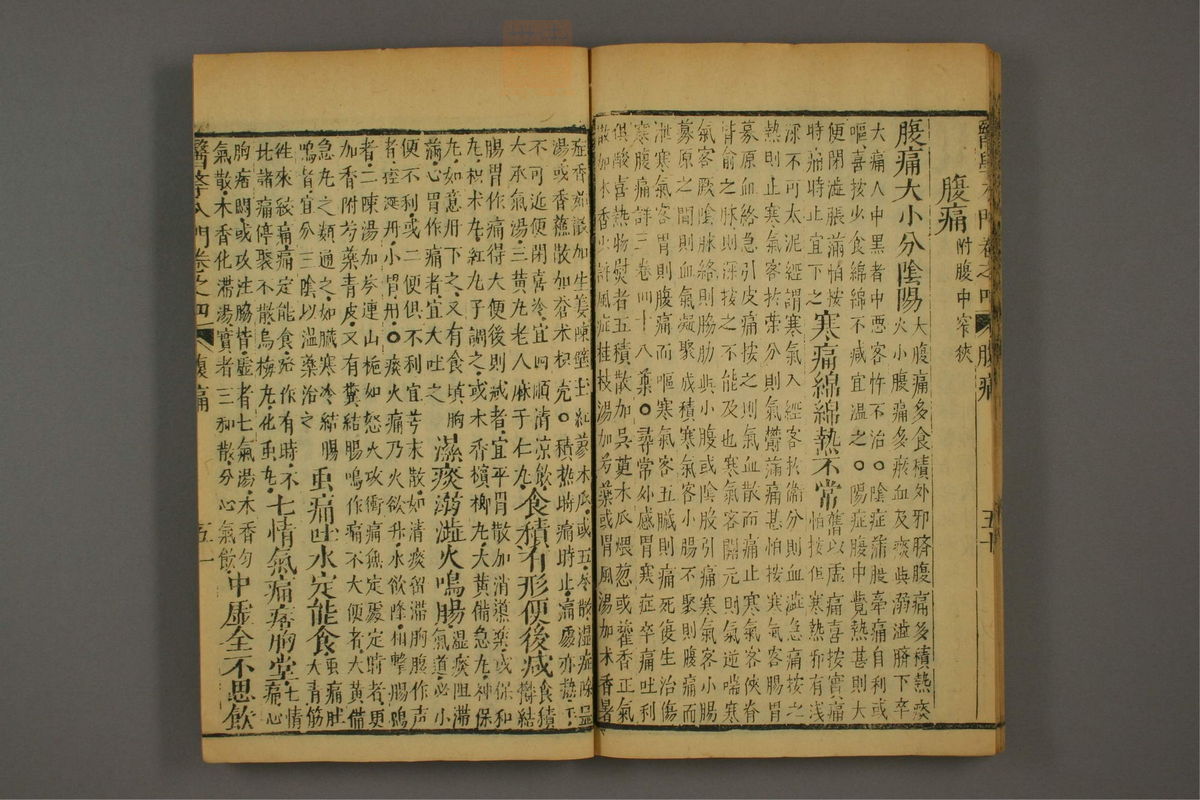 醫學入門卷之四 腹痛 五十
腹痛 附腹中窄狹
腹痛大小分陰陽 大腹痛多食積外邪臍腹痛多積熱痰
火小腹痛多瘀血及痰與溺澁臍下卒
大痛人中黑者中惡客忤不治○陰症滿肚牽痛自利或
嘔喜按少食綿綿不減宜溫之○陽症腹中覺熱甚則大
便閉澁脹滿怕按
時痛時止宜下之 寒痛綿綿熱不常 舊以虛痛喜按實痛
怕按但寒熱邪有淺
深不可太泥經謂寒氣入經客於衛分則血澁急痛按之
熱則止寒氣客於榮分則氣鬱滿痛甚怕按寒氣客腸胃
募原血絡急引皮痛按之則氣血散而痛止寒氣客俠脊
背俞之脉則深按之不能及也寒氣客關元則氣逆喘寒
氣客厥陰脉絡則脇肋與小腹或陰股引痛寒氣客小腸
募原之間則血氣凝聚成積寒氣客小腸不聚則腹痛而
泄寒氣客胃則腹痛而嘔寒氣客五臟則痛死復生治傷
寒腹痛詳三卷四十八葉○尋常外感胃寒症卒痛吐利
俱酸喜熱物熨者五積散加吳萸木瓜煨葱或藿香正氣
散加木香少許風症桂枝湯加芍藥或胃風湯加木香暑
症香薷散加生姜陳壁土紅蓼木瓜或五苓散濕症除濕
湯或香蘇散加蒼朮枳壳○積熱時痛時止痛處亦熱手
不可近便閉喜冷宜四順清凉飲
大承氣湯三黃丸老人麻子仁丸 食積有形便後減 食積
鬱結
腸胃作痛得大便後則減者宜平胃散加消導藥或保和
丸枳朮丸紅丸子調之或木香檳榔丸大黃備急丸神保
丸如意丹下之又有食填胸
滿心胃作痛者宜大吐之 濕痰濇澁火鳴腸 濕痰阻滯
氣道必小
便不利或二便俱不利宜芎朮散如清痰留滯胸腹作聲
者控涎丹小胃丹○痰火痛乃火欲升水欲降相擊腸鳴
者二陳湯加芩連山梔如怒火攻衝痛無定處定時者更
加香附芍藥青皮又有糞結腸鳴作痛不大便者大黃備
急丸之類通之如臟寒冷結腸
鳴者宜分三陰以溫藥治之 虫痛吐水定能食 虫痛肚
大青筋
徃來絞痛痛定能食發作有時不
比諸痛停聚不散烏梅丸化虫丸 七情氣痛痞胸堂 七情
痛心
胸痞悶或攻注脇背虛者七氣湯木香勻
氣散木香化滯湯實者三和散分心氣飲 中虛全不思飲
醫學入門卷之四 腹痛 五十一